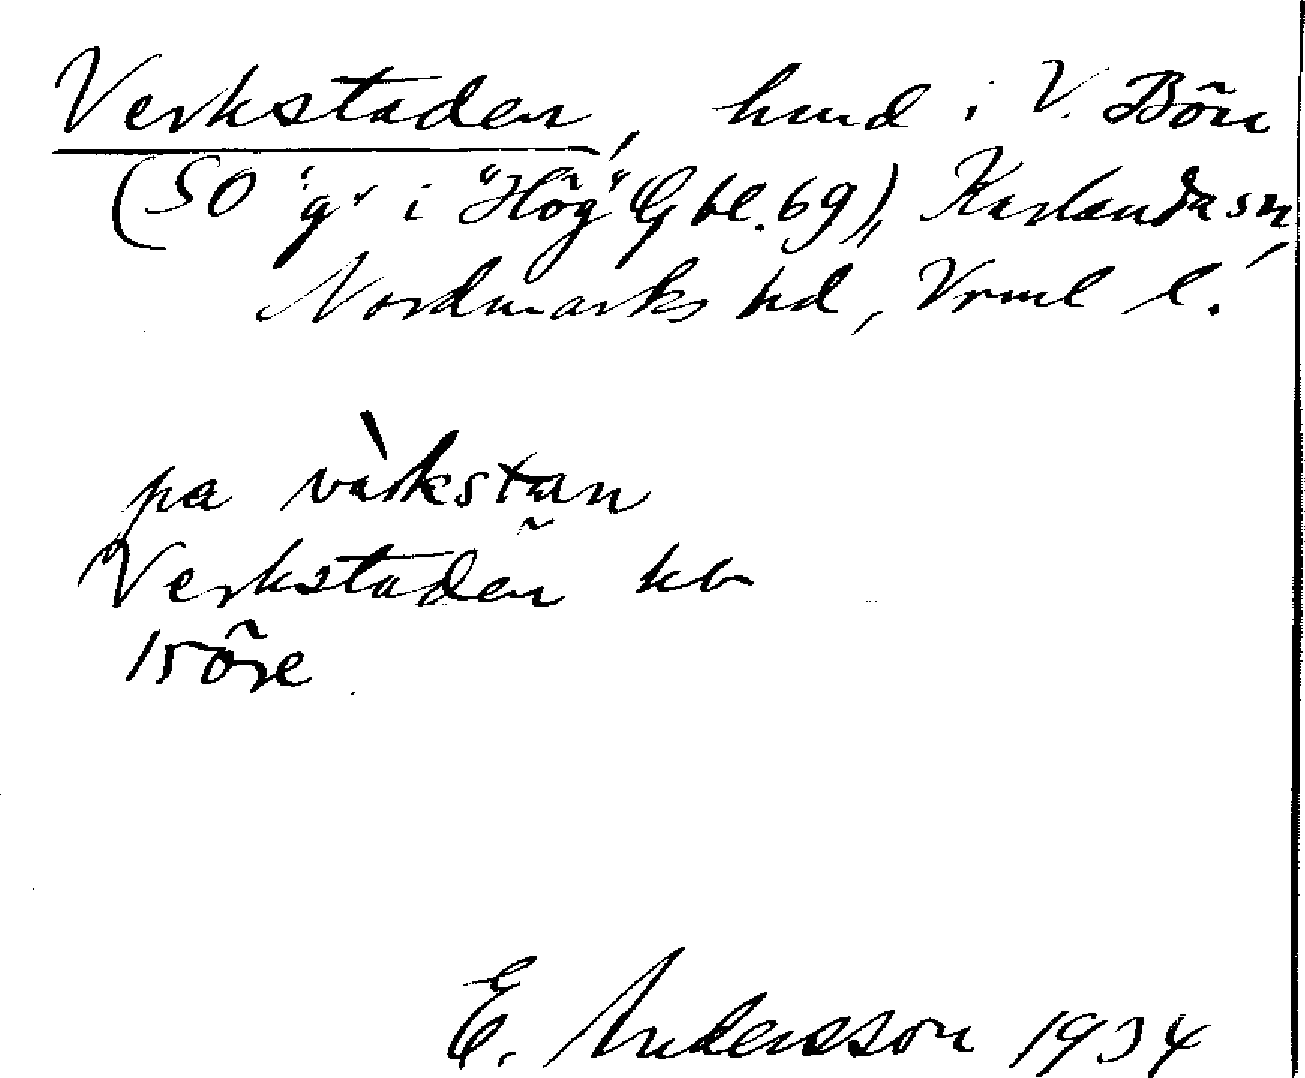 Verkstaden, hmd i V. Bön
(SO "g" i "Hög" G bl. 69), Karlanda sn,
Nordmarks hd, Vrml l.
pa vàrkstan
Verkstaden kb
15 öre
E. Andersson 1934